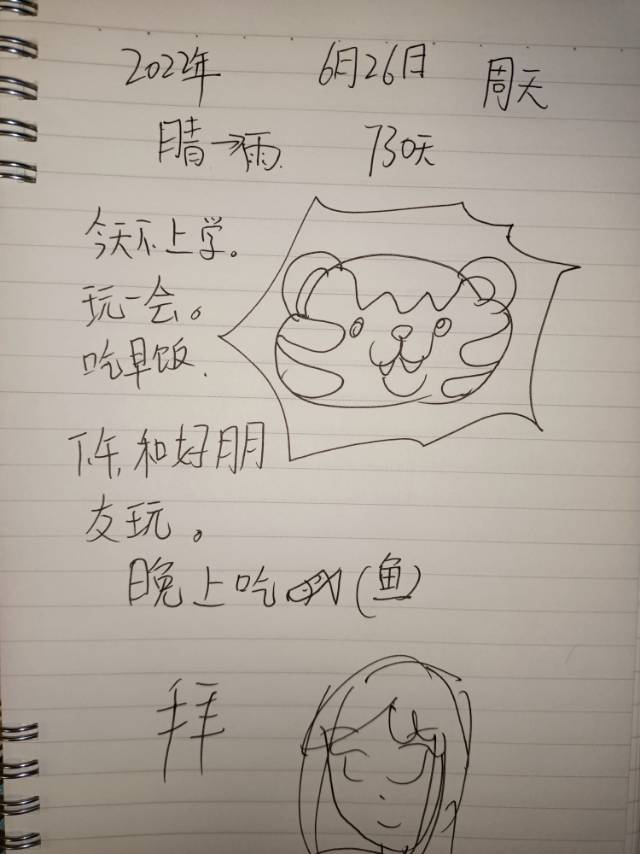 2022年 6月26日 周天
晴→雨. 730天
今天不上学。
玩一会。
吃早饭.
下午,和好朋
友玩。
晚上吃(鱼)
拜